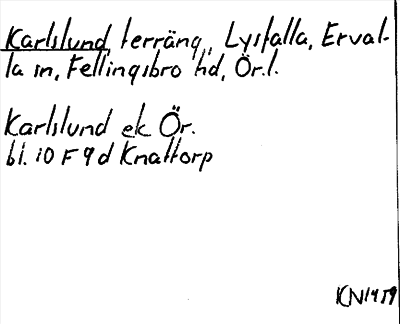 Karlslund, terräng, Lysfalla, Erval-
la sn, Fellingsbro hd, Ör.l.
Karlslund ek Ör.
bl. 10 F 9 d Knattorp